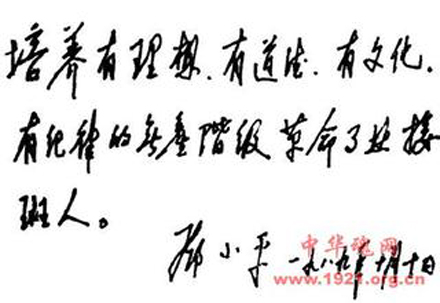 培养有理想、有道德、有文化、
有纪律的无产階级革命事业接
班人。
邓小平 一九八九年十月十日
中华魂网
www.1921.org.cn